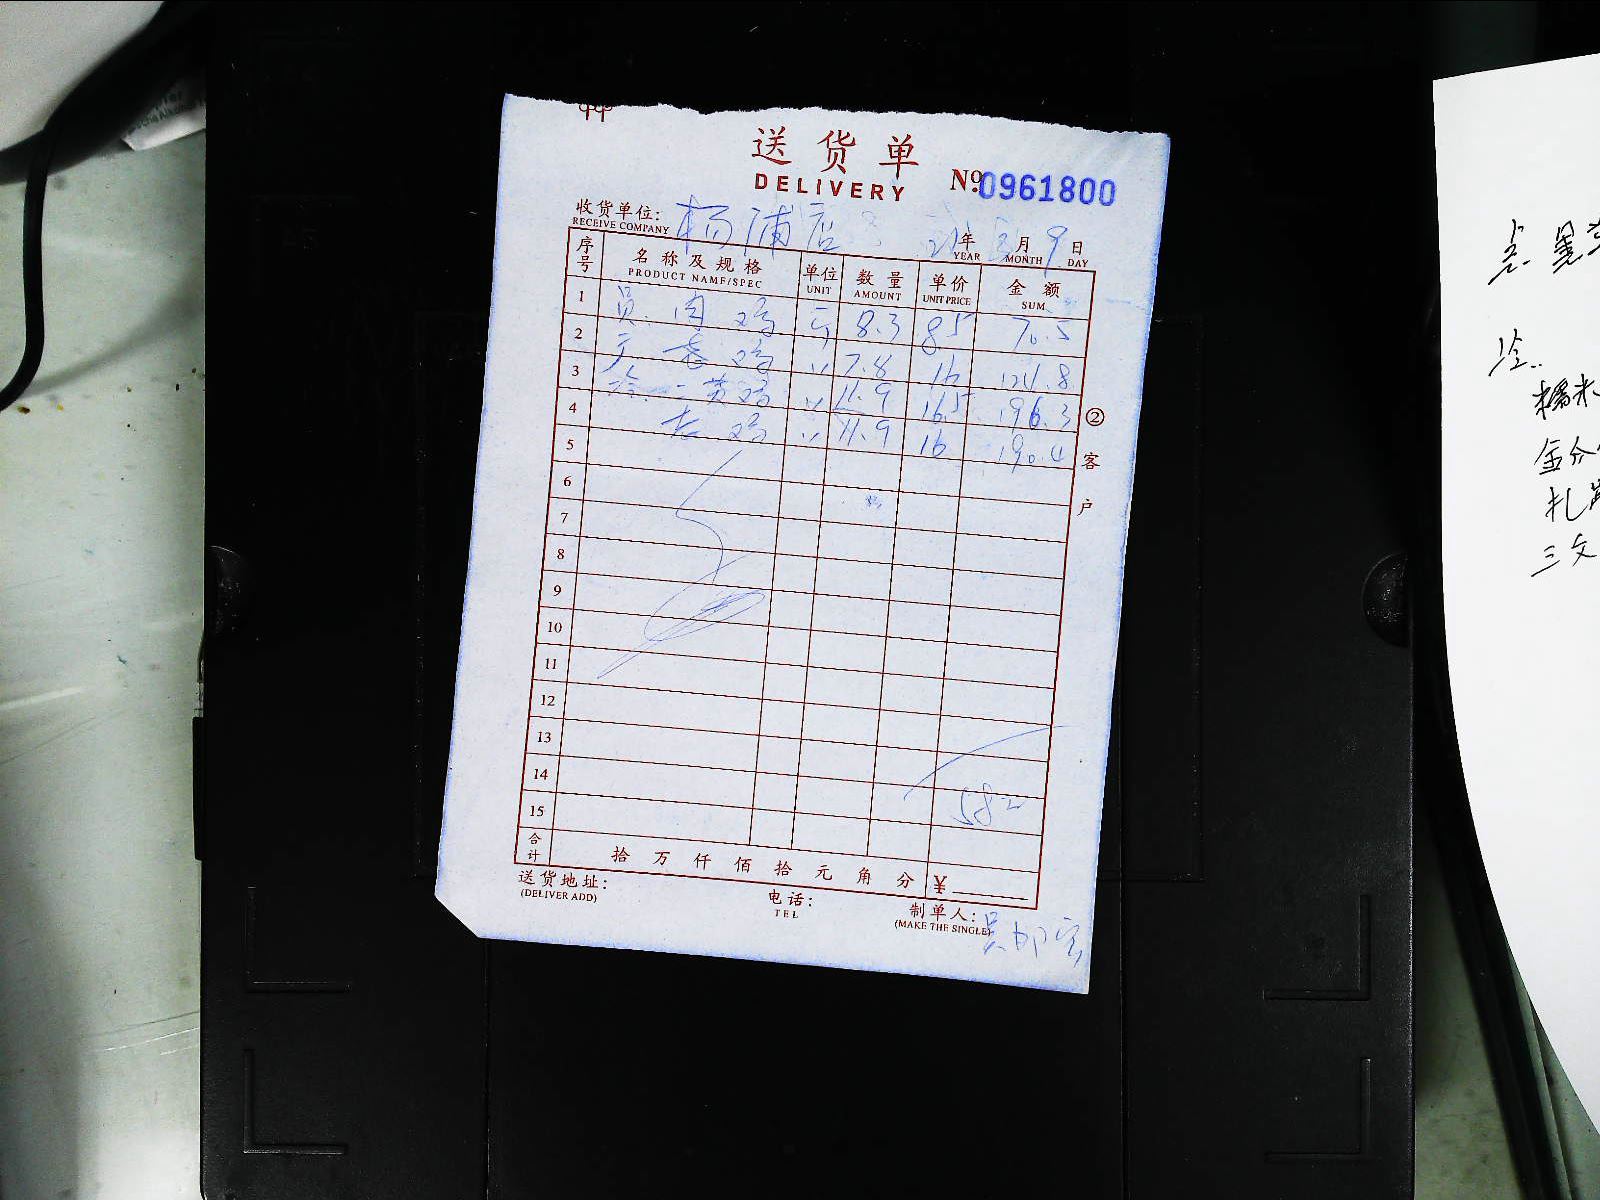 送货单
DELIVERY
№ 0961800
收货单位: 杨浦店
RECEIVE COMPANY
年 月 9 日
YEAR MONTH DAY
序号 名称及规格 单位 数量 单价 金额
PRODUCT NAME/SPEC UNIT AMOUNT UNIT PRICE SUM
1 肉鸡 斤 8.3 85 70.5
2 老鸡 〃 7.8 16 124.8
3 三黄鸡 〃 11.9 16.5 196.3
4 老鸡 〃 11.9 16 190.4
5
6
7
8
9
10
11
12
13
14
15
582
合计 拾 万 仟 佰 拾 元 角 分 ¥
② 客户
送货地址:
(DELIVER ADD)
电话:
TEL
制单人: 吴
(MAKE THE SINGLE)
冷..
糯米
三文